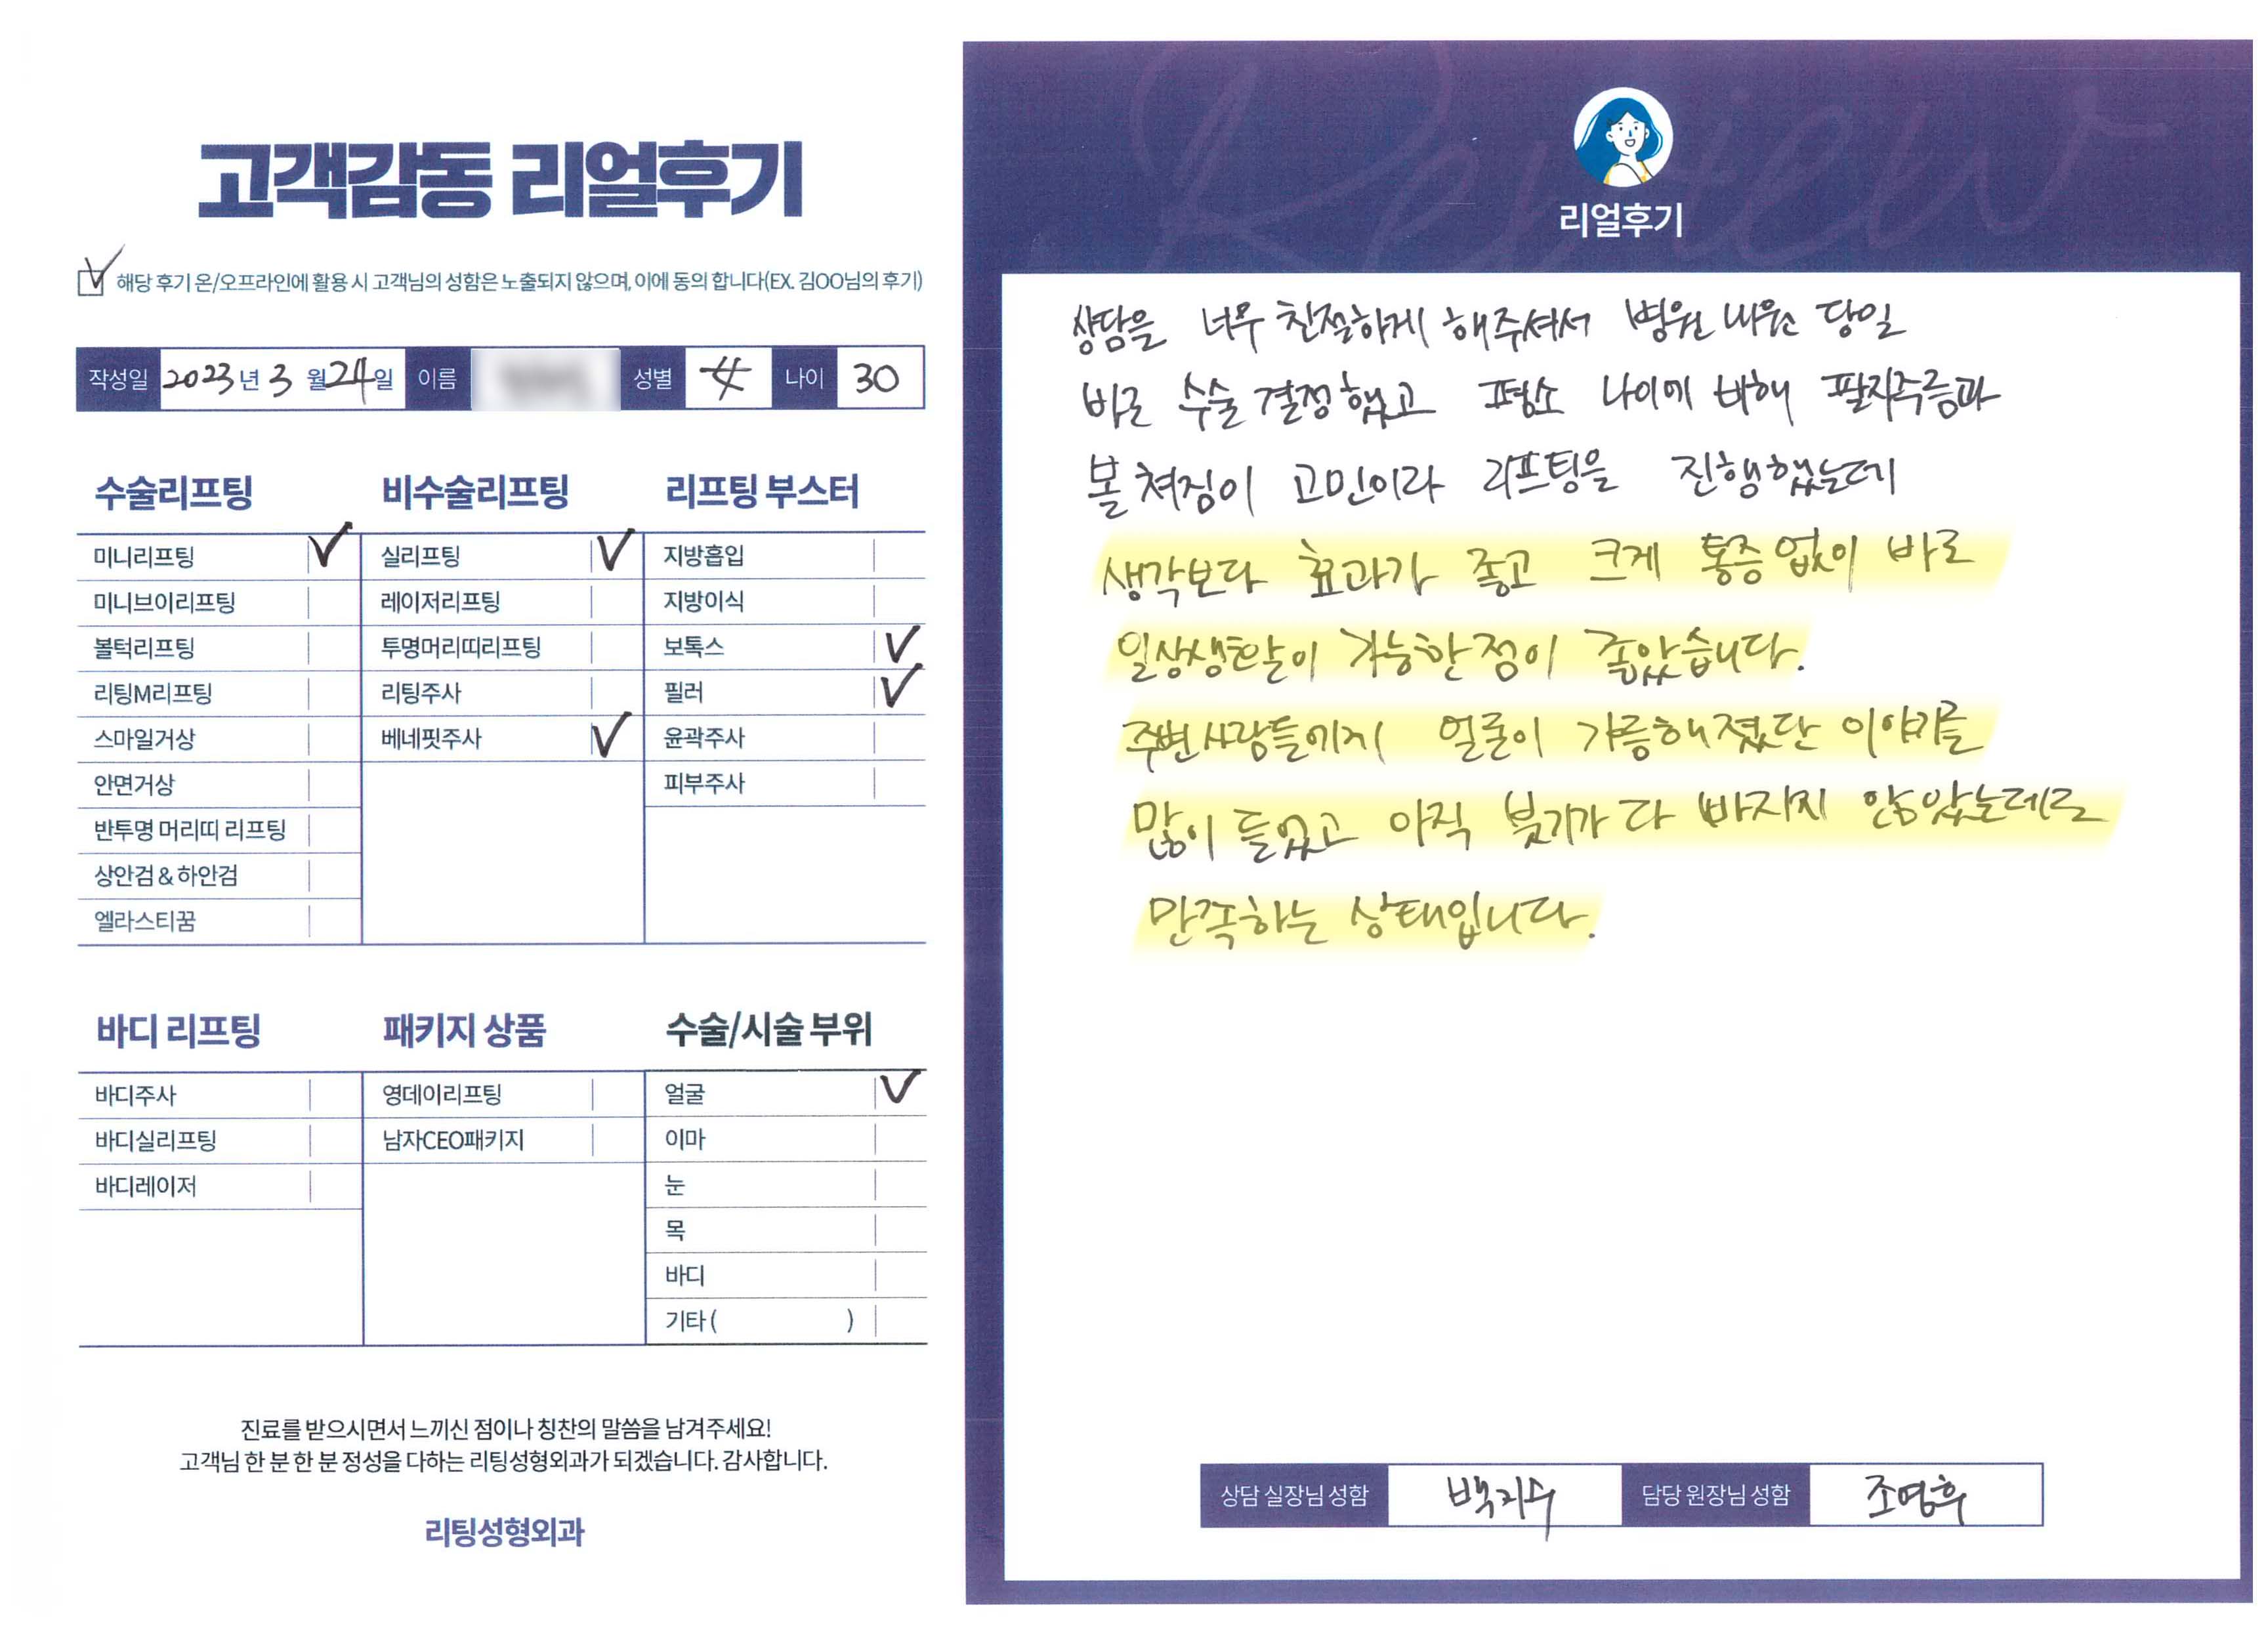 고객감동 리얼후기
해당 후기 온/오프라인에 활용 시 고객님의 성함은 노출되지 않으며, 이에 동의 합니다(EX. 김OO님의 후기)
작성일 2023년 3월 24일 이름 성별 女 나이 30
수술리프팅
미니리프팅
미니브이리프팅
볼턱리프팅
리팅M리프팅
스마일거상
안면거상
반투명 머리띠 리프팅
상안검 & 하안검
엘라스티꿈
비수술리프팅
실리프팅
레이저리프팅
투명머리띠리프팅
리팅주사
베네핏주사
리프팅 부스터
지방흡입
지방이식
보톡스
필러
윤곽주사
피부주사
바디 리프팅
바디주사
바디실리프팅
바디레이저
패키지 상품
영데이리프팅
남자CEO패키지
수술/시술 부위
얼굴
이마
눈
목
바디
기타 ( )
진료를 받으시면서 느끼신 점이나 칭찬의 말씀을 남겨주세요!
고객님 한 분 한 분 정성을 다하는 리팅성형외과가 되겠습니다. 감사합니다.
리팅성형외과
Review
리얼후기
상담을 너무 친절하게 해주셔서 병원 내원 당일
바로 수술 결정했고 평소 나이에 비해 팔자주름과
볼 쳐짐이 고민이라 리프팅을 진행했는데
생각보다 효과가 좋고 크게 통증 없이 바로
일상생활이 가능한 점이 좋았습니다.
주변사람들에게 얼굴이 갸름해졌단 이야기를
많이 들었고 아직 붓기가 다 빠지지 않았는데도
만족하는 상태입니다.
상담 실장님 성함 백지수 담당 원장님 성함 조영훈